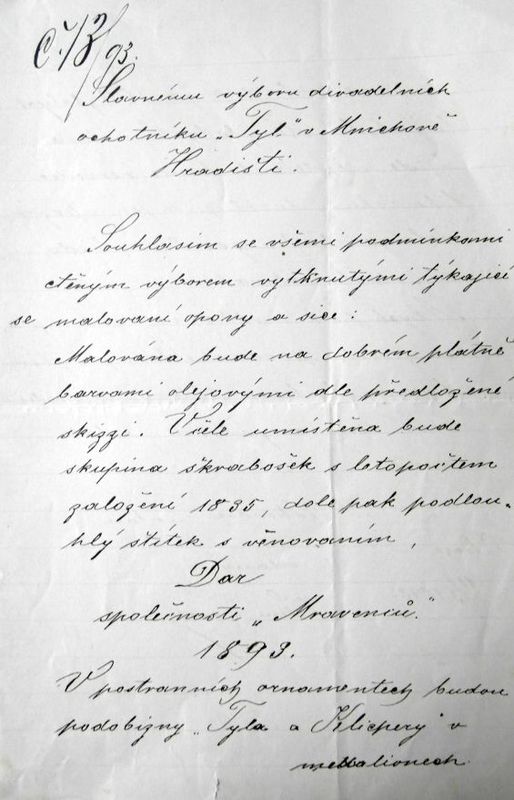 č. 13/93.
Slavnému výboru divadelních
ochotníku „Tyl“ v Mnichově
Hradišti.
Souhlasim se všemi podmínkami
ctěným výborem vytknutými týkající
se malování opony a sice:
Malována bude na dobrém plátně
barvami olejovými dle předložené
skizzi. V čele umístěna bude
skupina škrabošek s letopočtem
založení 1835, dole pak podlou-
hlý štítek s věnovaním,
Dar
společnosti „Mravenců.“
1893.
V postranních ornamentech budou
podobizny „Tyla a Klicpery“ v
medalionech.